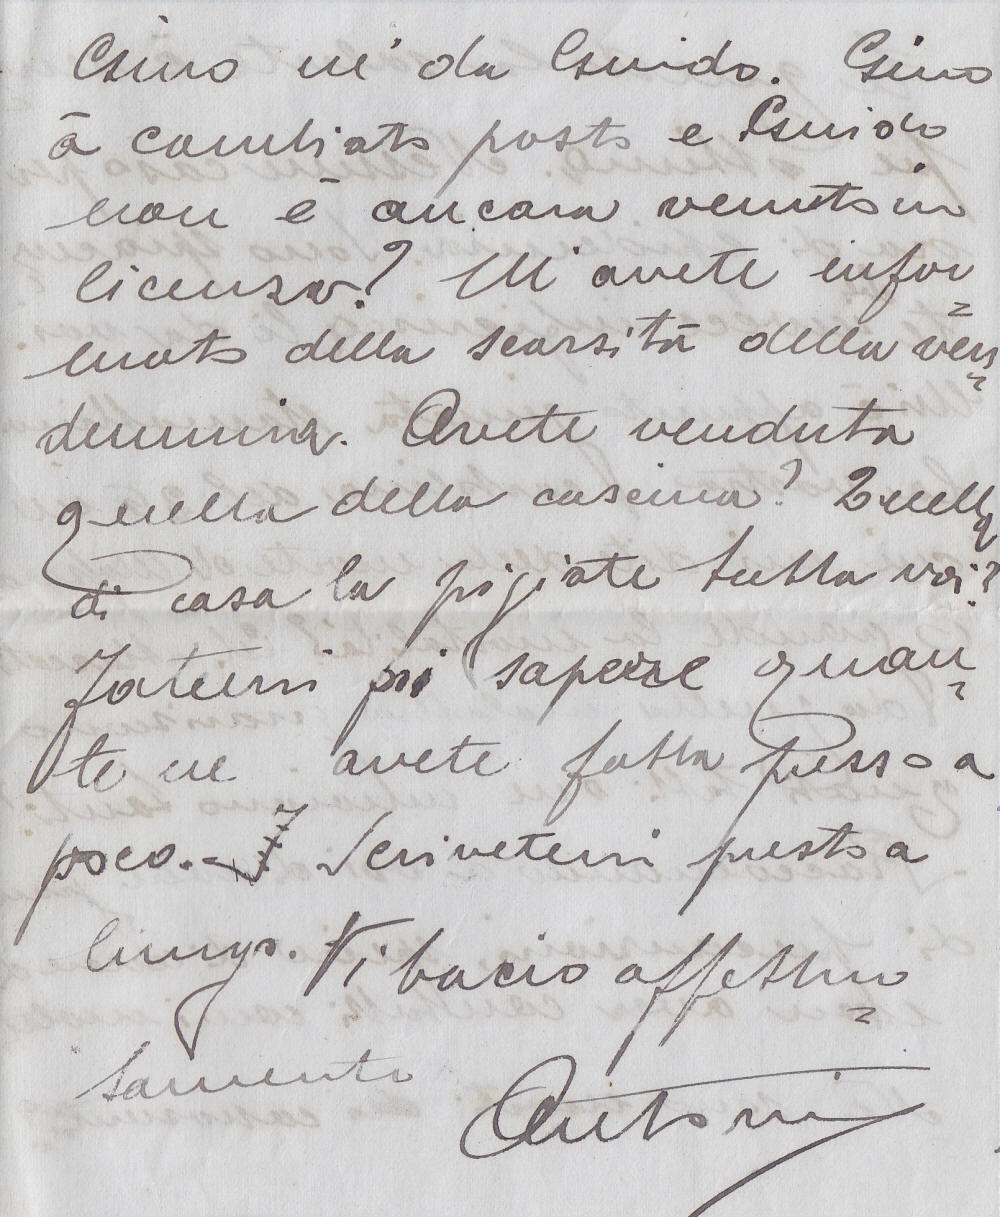 Gino nè da Guido. Gino
à cambiato posto e Guido
non è ancora venuto in
licenza? Mi avete infor=
mato della scarsità della ven=
demmia. Avete venduta
quella della cascina? Quella
di casa la pigiate tutta voi?
Fatemi poi sapere quan=
te ne avete fatta presso a
poco.- Scrivetemi presto a
lungo. Vi bacio affettuo=
samente
Antonio